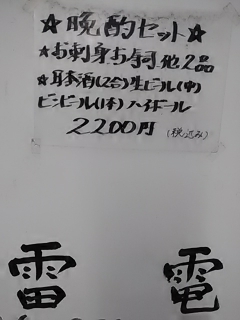 ☆晩酌セット☆
★お刺身お寿司他2品
★日本酒(2合)生ビール(中)
ビンビール(1本)ハイボール
2200円(税込み)
雷電